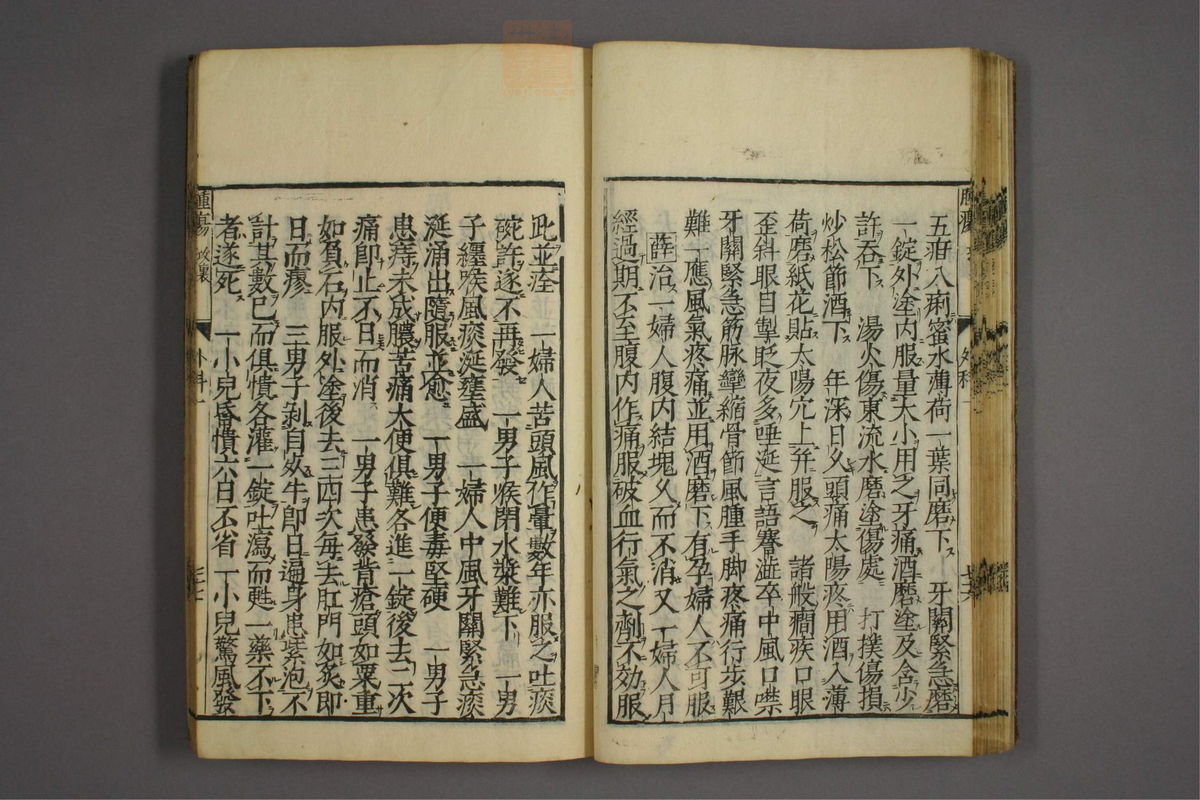 五疳八痢蜜水薄荷一葉同磨下　牙關緊急磨
一錠外塗内服量大小用之牙痛酒磨塗及含少
許吞下　湯火傷東流水磨塗傷處　打撲傷損
炒松節酒下　年深日久頭痛太陽疼用酒入薄
荷磨紙花貼太陽穴上并服之　諸般癇疾口眼
歪斜眼目掣眨夜多唾涎言語蹇澁卒中風口噤
牙關緊急筋脉攣縮骨節風腫手脚疼痛行步艱
難一應風氣疼痛並用酒磨下有孕婦人不可服
薛治一婦人腹内結塊久而不消又一婦人月
經過期不至腹内作痛服破血行氣之劑不効服
此並痊　一婦人苦頭風作暈數年亦服之吐痰
碗許遂不再發　一男子喉閉水漿難下　一男
子纏喉風痰涎壅盛　一婦人中風牙關緊急痰
涎涌出隨服並愈　一男子便毒堅硬　一男子
患痔未成膿苦痛大便俱難各進一錠後去二次
痛即止不日而消　一男子患發背瘡頭如粟重
如負石内服外塗後去三四次每去肛門如炙即
日而瘳　三男子剥自死牛即日遍身患紫泡不
計其數已而俱憒各灌一錠吐瀉而甦一藥不下
者遂死　一小兒昏憒六日不省　一小兒驚風發
腫瘍
外科一